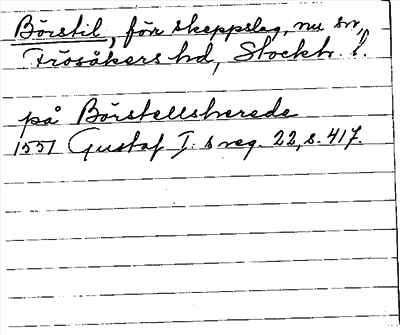 Börstil, förr skeppslag, nu sn,
Frösåkers hd, Stockh. l.
på Börstellsherede
1551 Gustaf I:s reg. 22, s. 417.